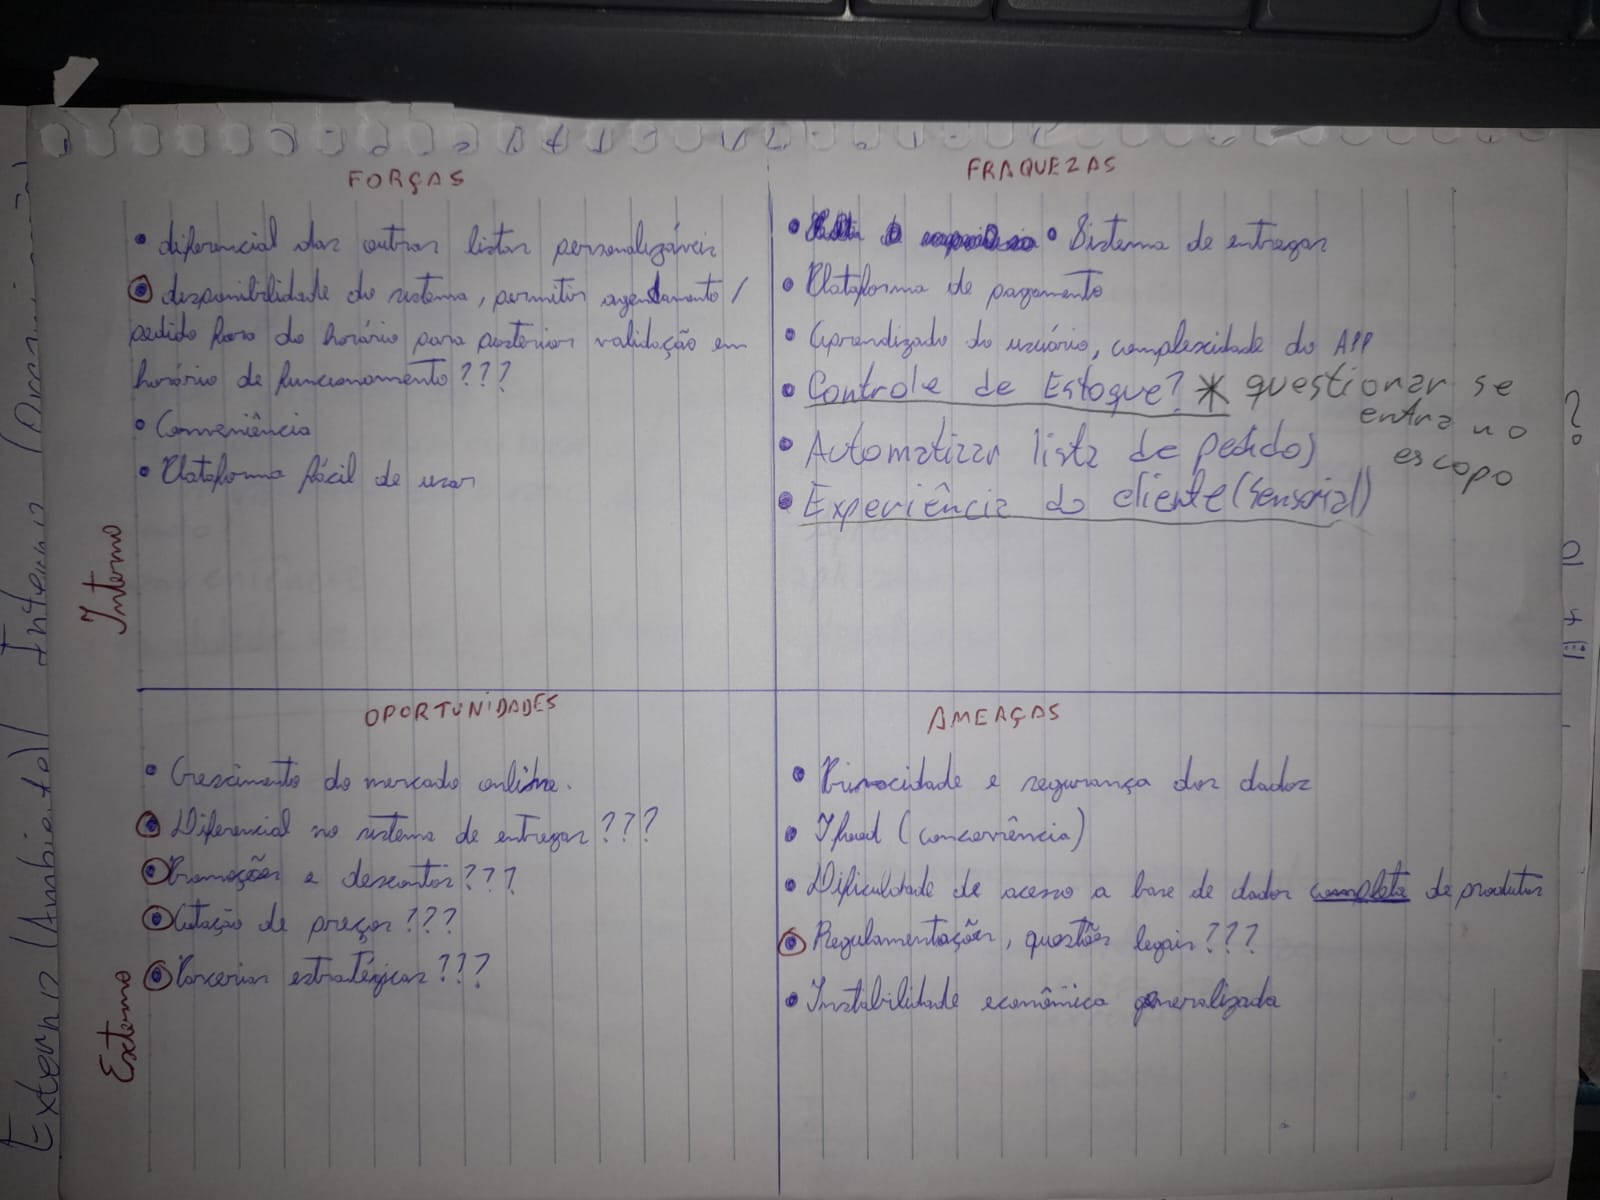 FORÇAS
• diferencial das outras listas personalizáveis
• disponibilidade do sistema, permitir agendamento /
pedido fora do horário para posterior validação em
horário de funcionamento ???
• Conveniência
• Plataforma fácil de usar
FRAQUEZAS
• Sistema de entregas
• Plataforma de pagamento
• Aprendizado do usuário, complexidade do APP
• Controle de Estoque? * questionar se
entra no
escopo
?
• Automatizar lista de pedidos
• Experiência do cliente (sensorial)
Interno
OPORTUNIDADES
• Crescimento do mercado online.
• Diferencial no sistema de entregas ???
• Promoções e descontos ???
• Cotação de preços ???
• Parcerias estratégicas ???
AMEAÇAS
• Privacidade e segurança dos dados
• Ifood (concorrência)
• Dificuldade de acesso a base de dados completa de produtos
• Regulamentações, questões legais ???
• Instabilidade econômica generalizada
Externo
Externo (Ambiental)